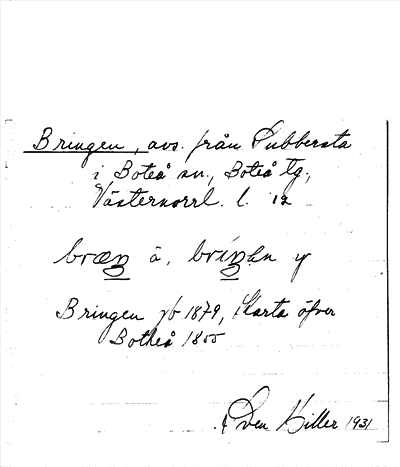 Bringen, avs. från Subbersta
i Boteå sn., Boteå tg.,
Västernorrl. l. 12
bræŋ å, bríŋən y
Bringen jb 1879, Karta öfver
Botheå 1855
Sven Killer 1931